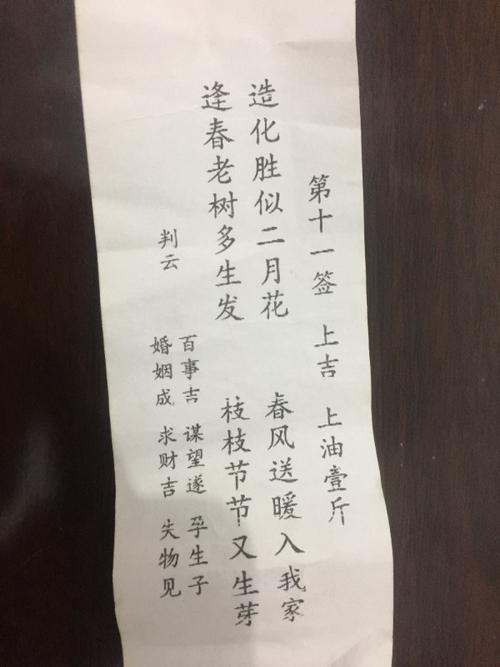 第十一签 上吉 上油壹斤
造化胜似二月花 春风送暖入我家
逢春老树多生发 枝枝节节又生芽
判云
百事吉 谋望遂 孕生子
婚姻成 求财吉 失物见